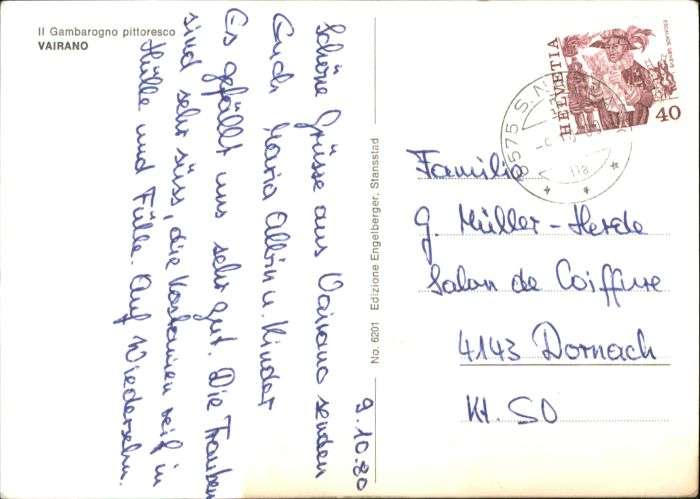 Il Gambarogno pittoresco
VAIRANO
9.10.80
Schöne Grüsse aus Vairano senden
Euch Maria Albin u. Kinder
Es gefällt uns sehr gut. Die Trauben
sind sehr süss, die Kastanien reif in
Hülle und Fülle. Auf Wiedersehn.
No. 6201 Edizione Engelberger, Stansstad
HELVETIA
40
6575 S. N
Familie
G. Müller-Herde
Salon de Coiffure
4143 Dornach
Kt. SO